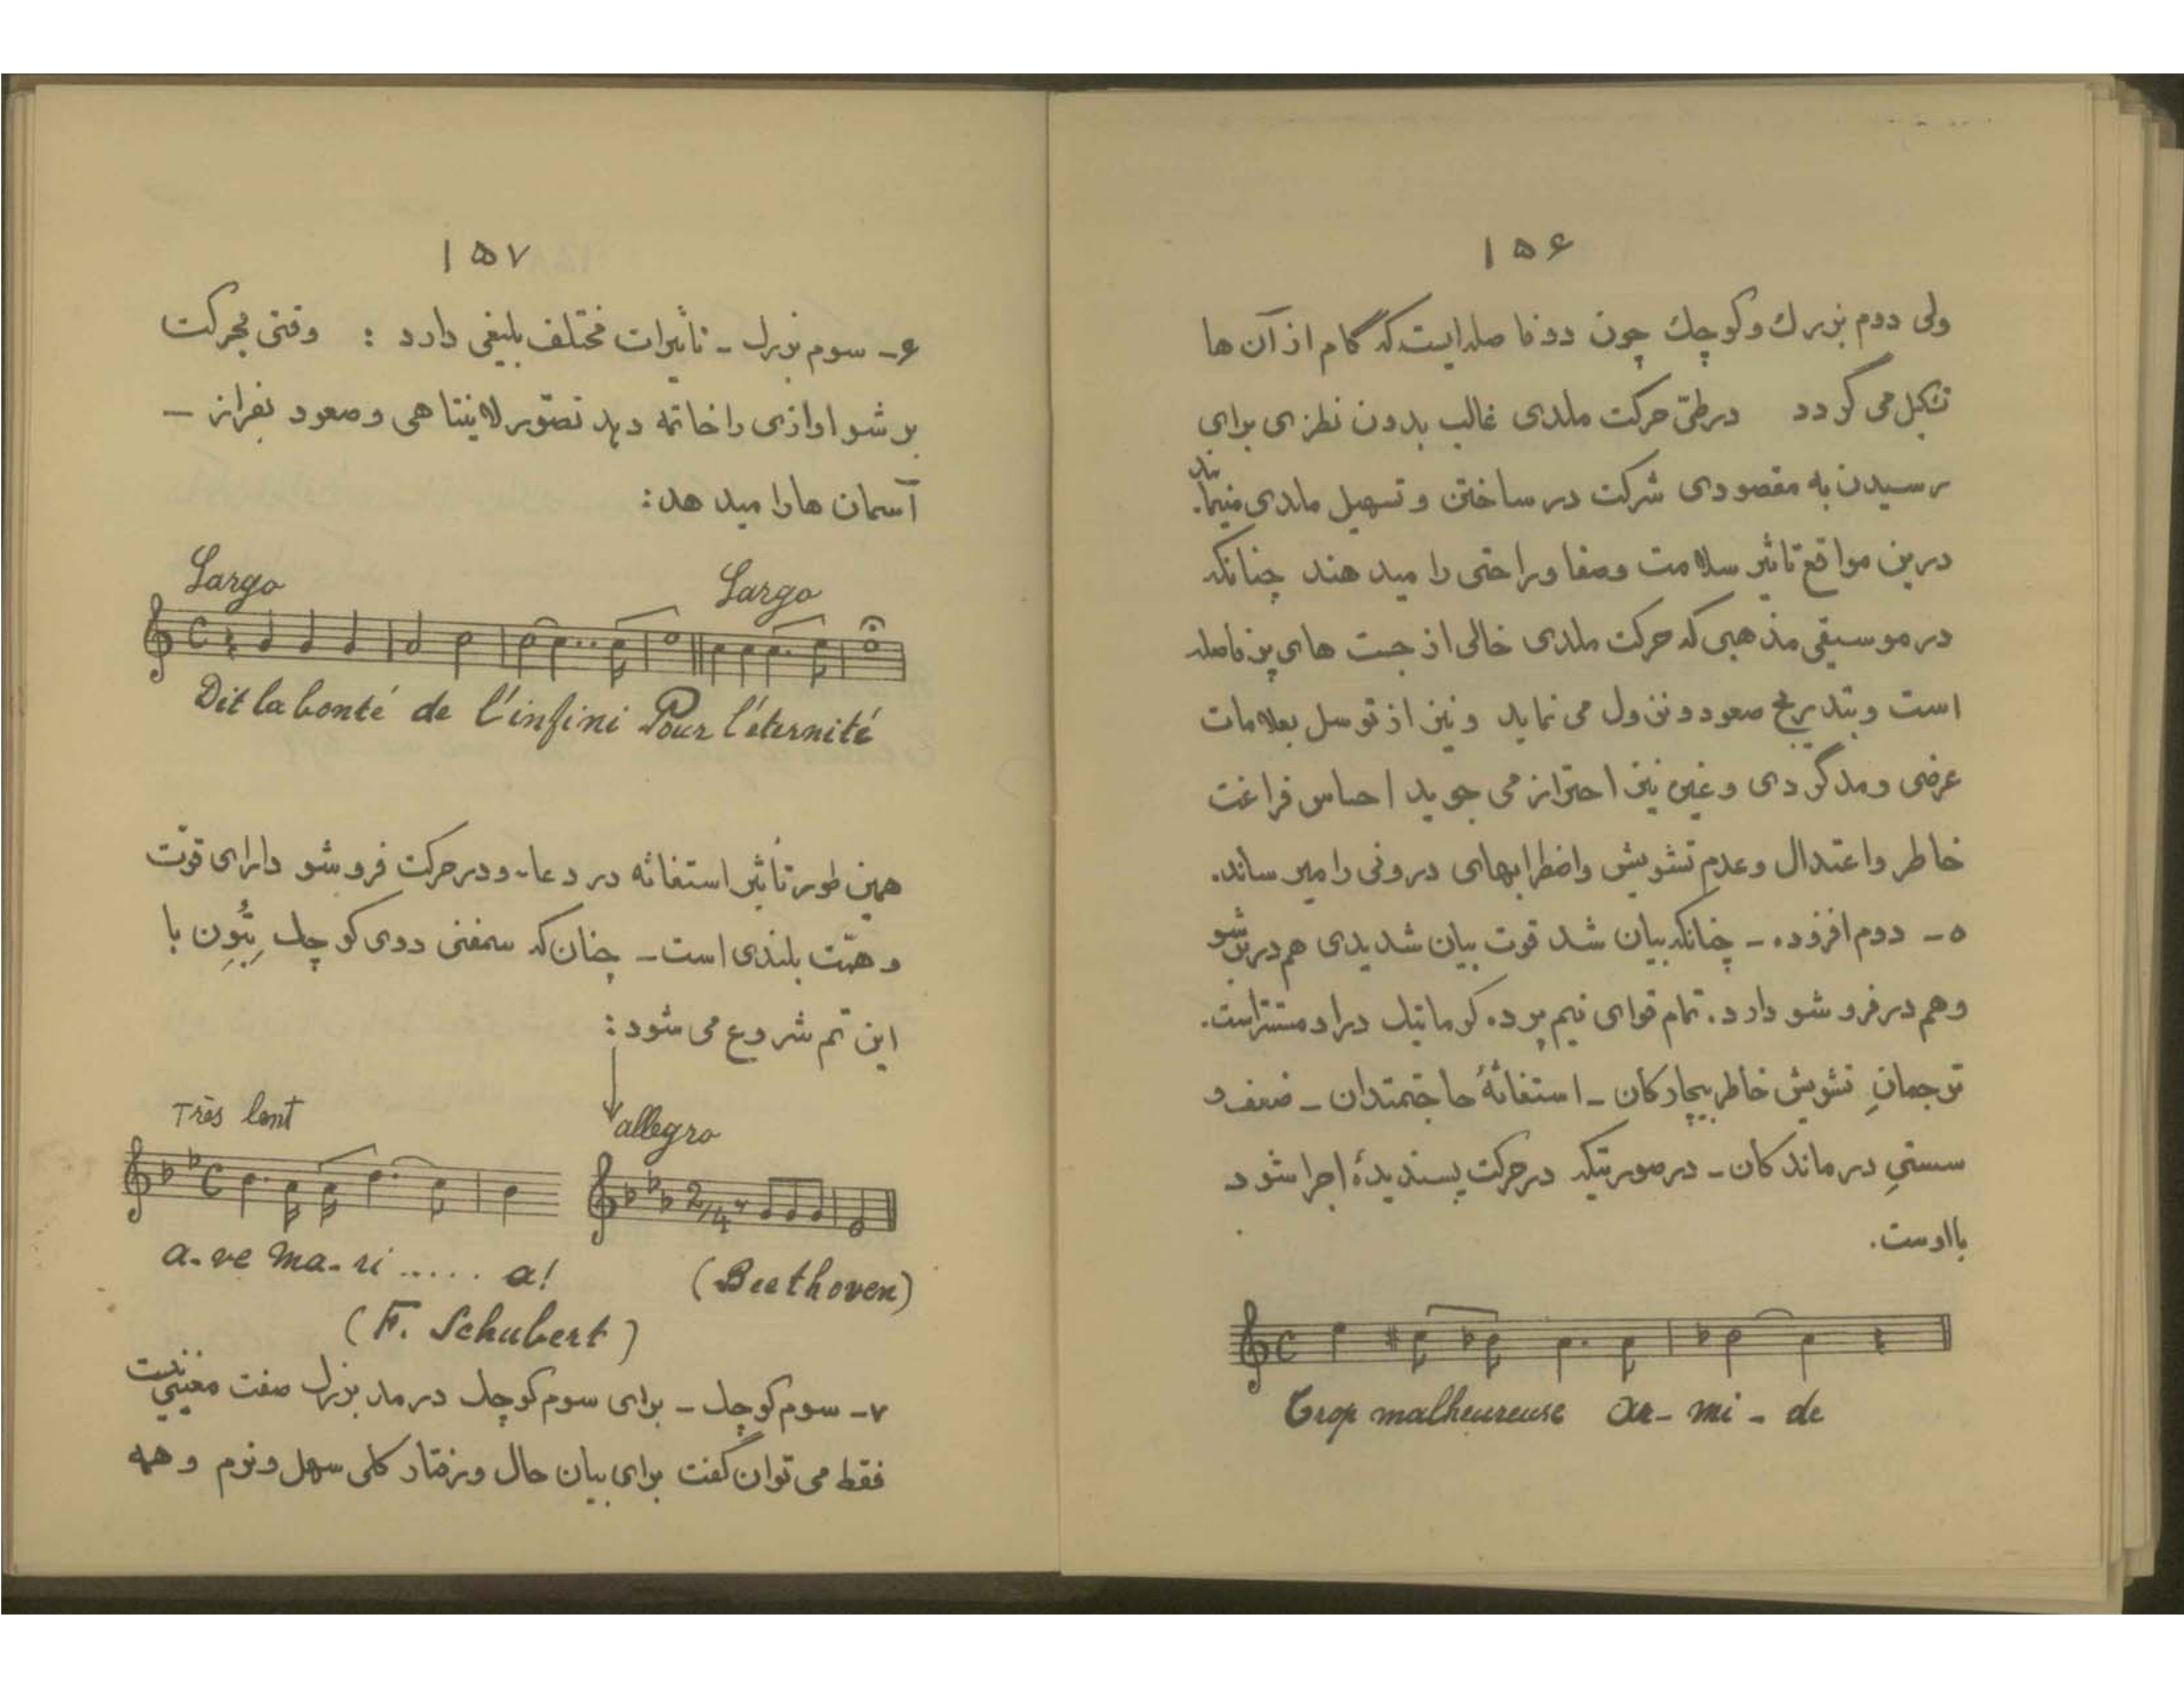 ۱۵۶
ولی دوم بزرك و كوچك چون دو فاصله ایست كه گام از آن ها
تشكیل می گردد در طیّ حركت ملدی غالب بدون نظری برای
رسیدن به مقصودی شركت در ساختن و تسهیل ملدی مینمایند.
درین مواقع تاثیر سلامت وصفا وراحتی را میدهند چنانكه
در موسیقی مذهبی كه حركت ملدی خالی از جست های پرفاصله
است و بتدریج صعود و نزول می نماید و نیز از توسل بعلامات
عرضی و مدگردی و غیره نیز احتراز می جوید احساس فراغت
خاطر و اعتدال و عدم تشویش واضطرابهای درونی را میرساند.
۵- دوم افزوده - چنانكه بیان شد قوت بیان شدیدی هم در بر شو
و هم در فرو شو دارد. تمام قوای نیم پرده كرماتیك در او مستتر است.
ترجمانِ تشویش خاطر بیچارگان - استغاثهٔ حاجتمندان - ضعف و
سستیِ درماندگان - در صورتیكه در حركت پسندیدهٔ اجرا شود
با اوست.
Trop malheureuse ar- mi - de
۱۵۷
۶- سوم بزرك - تاثیرات مختلف بلیغی دارد : وقتی بحركت
بر شو اوازی را خاتمه دهد تصوّر لایتناهی و صعود بفراز -
آسمان ها را میدهد:
Largo Largo
Dit la bonté de l'infini Pour l'éternité
همین طور تأثیر استغاثه در دعا - و در حركت فرو شو دارای قوّت
و همّت بلندی است - چنان كه سمفنی دوی كوچك بِتُوِن با
این تم شروع می شود :
Très lent allegro
2/4
a-ve ma-ri ..... a! (Beethoven)
(F. Schubert)
۷- سوم كوچك - برای سوم كوچك در مد بزرك صفت معینی نیست
فقط می توان گفت برای بیان حال و رفتار كلی سهل و نرم و همه